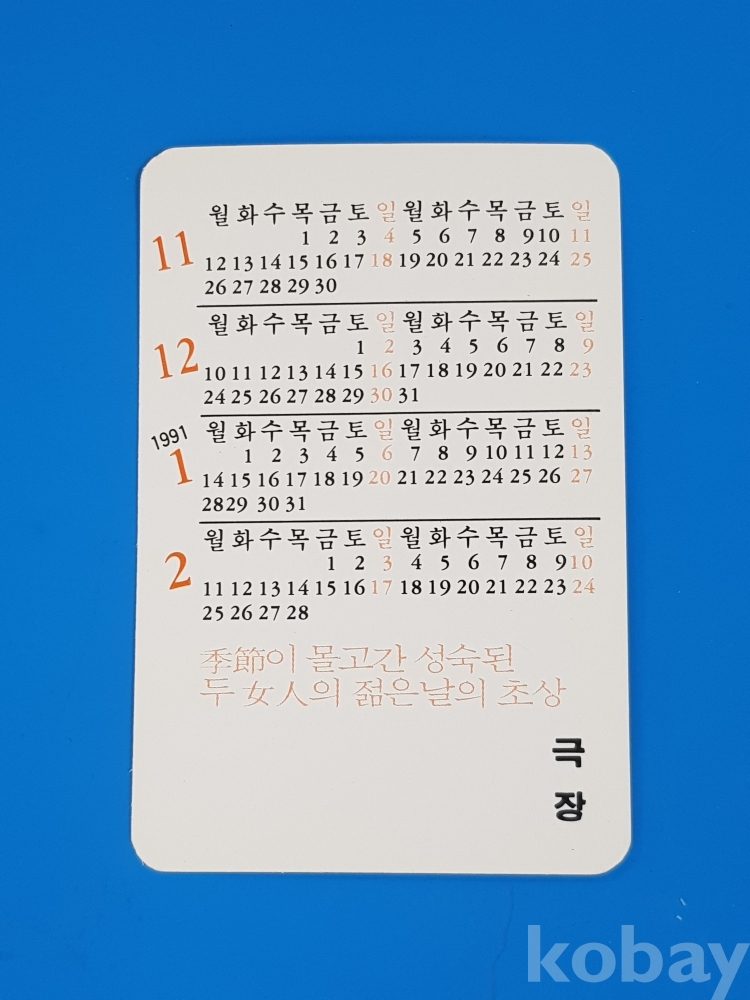 월 화 수 목 금 토 일 월 화 수 목 금 토 일
11
1 2 3 4 5 6 7 8 9 10 11
12 13 14 15 16 17 18 19 20 21 22 23 24 25
26 27 28 29 30
월 화 수 목 금 토 일 월 화 수 목 금 토 일
12
1 2 3 4 5 6 7 8 9
10 11 12 13 14 15 16 17 18 19 20 21 22 23
24 25 26 27 28 29 30 31
월 화 수 목 금 토 일 월 화 수 목 금 토 일
1991
1
1 2 3 4 5 6 7 8 9 10 11 12 13
14 15 16 17 18 19 20 21 22 23 24 25 26 27
28 29 30 31
월 화 수 목 금 토 일 월 화 수 목 금 토 일
2
1 2 3 4 5 6 7 8 9 10
11 12 13 14 15 16 17 18 19 20 21 22 23 24
25 26 27 28
季節이 몰고간 성숙된
두 女人의 젊은날의 초상
극
장
kobay